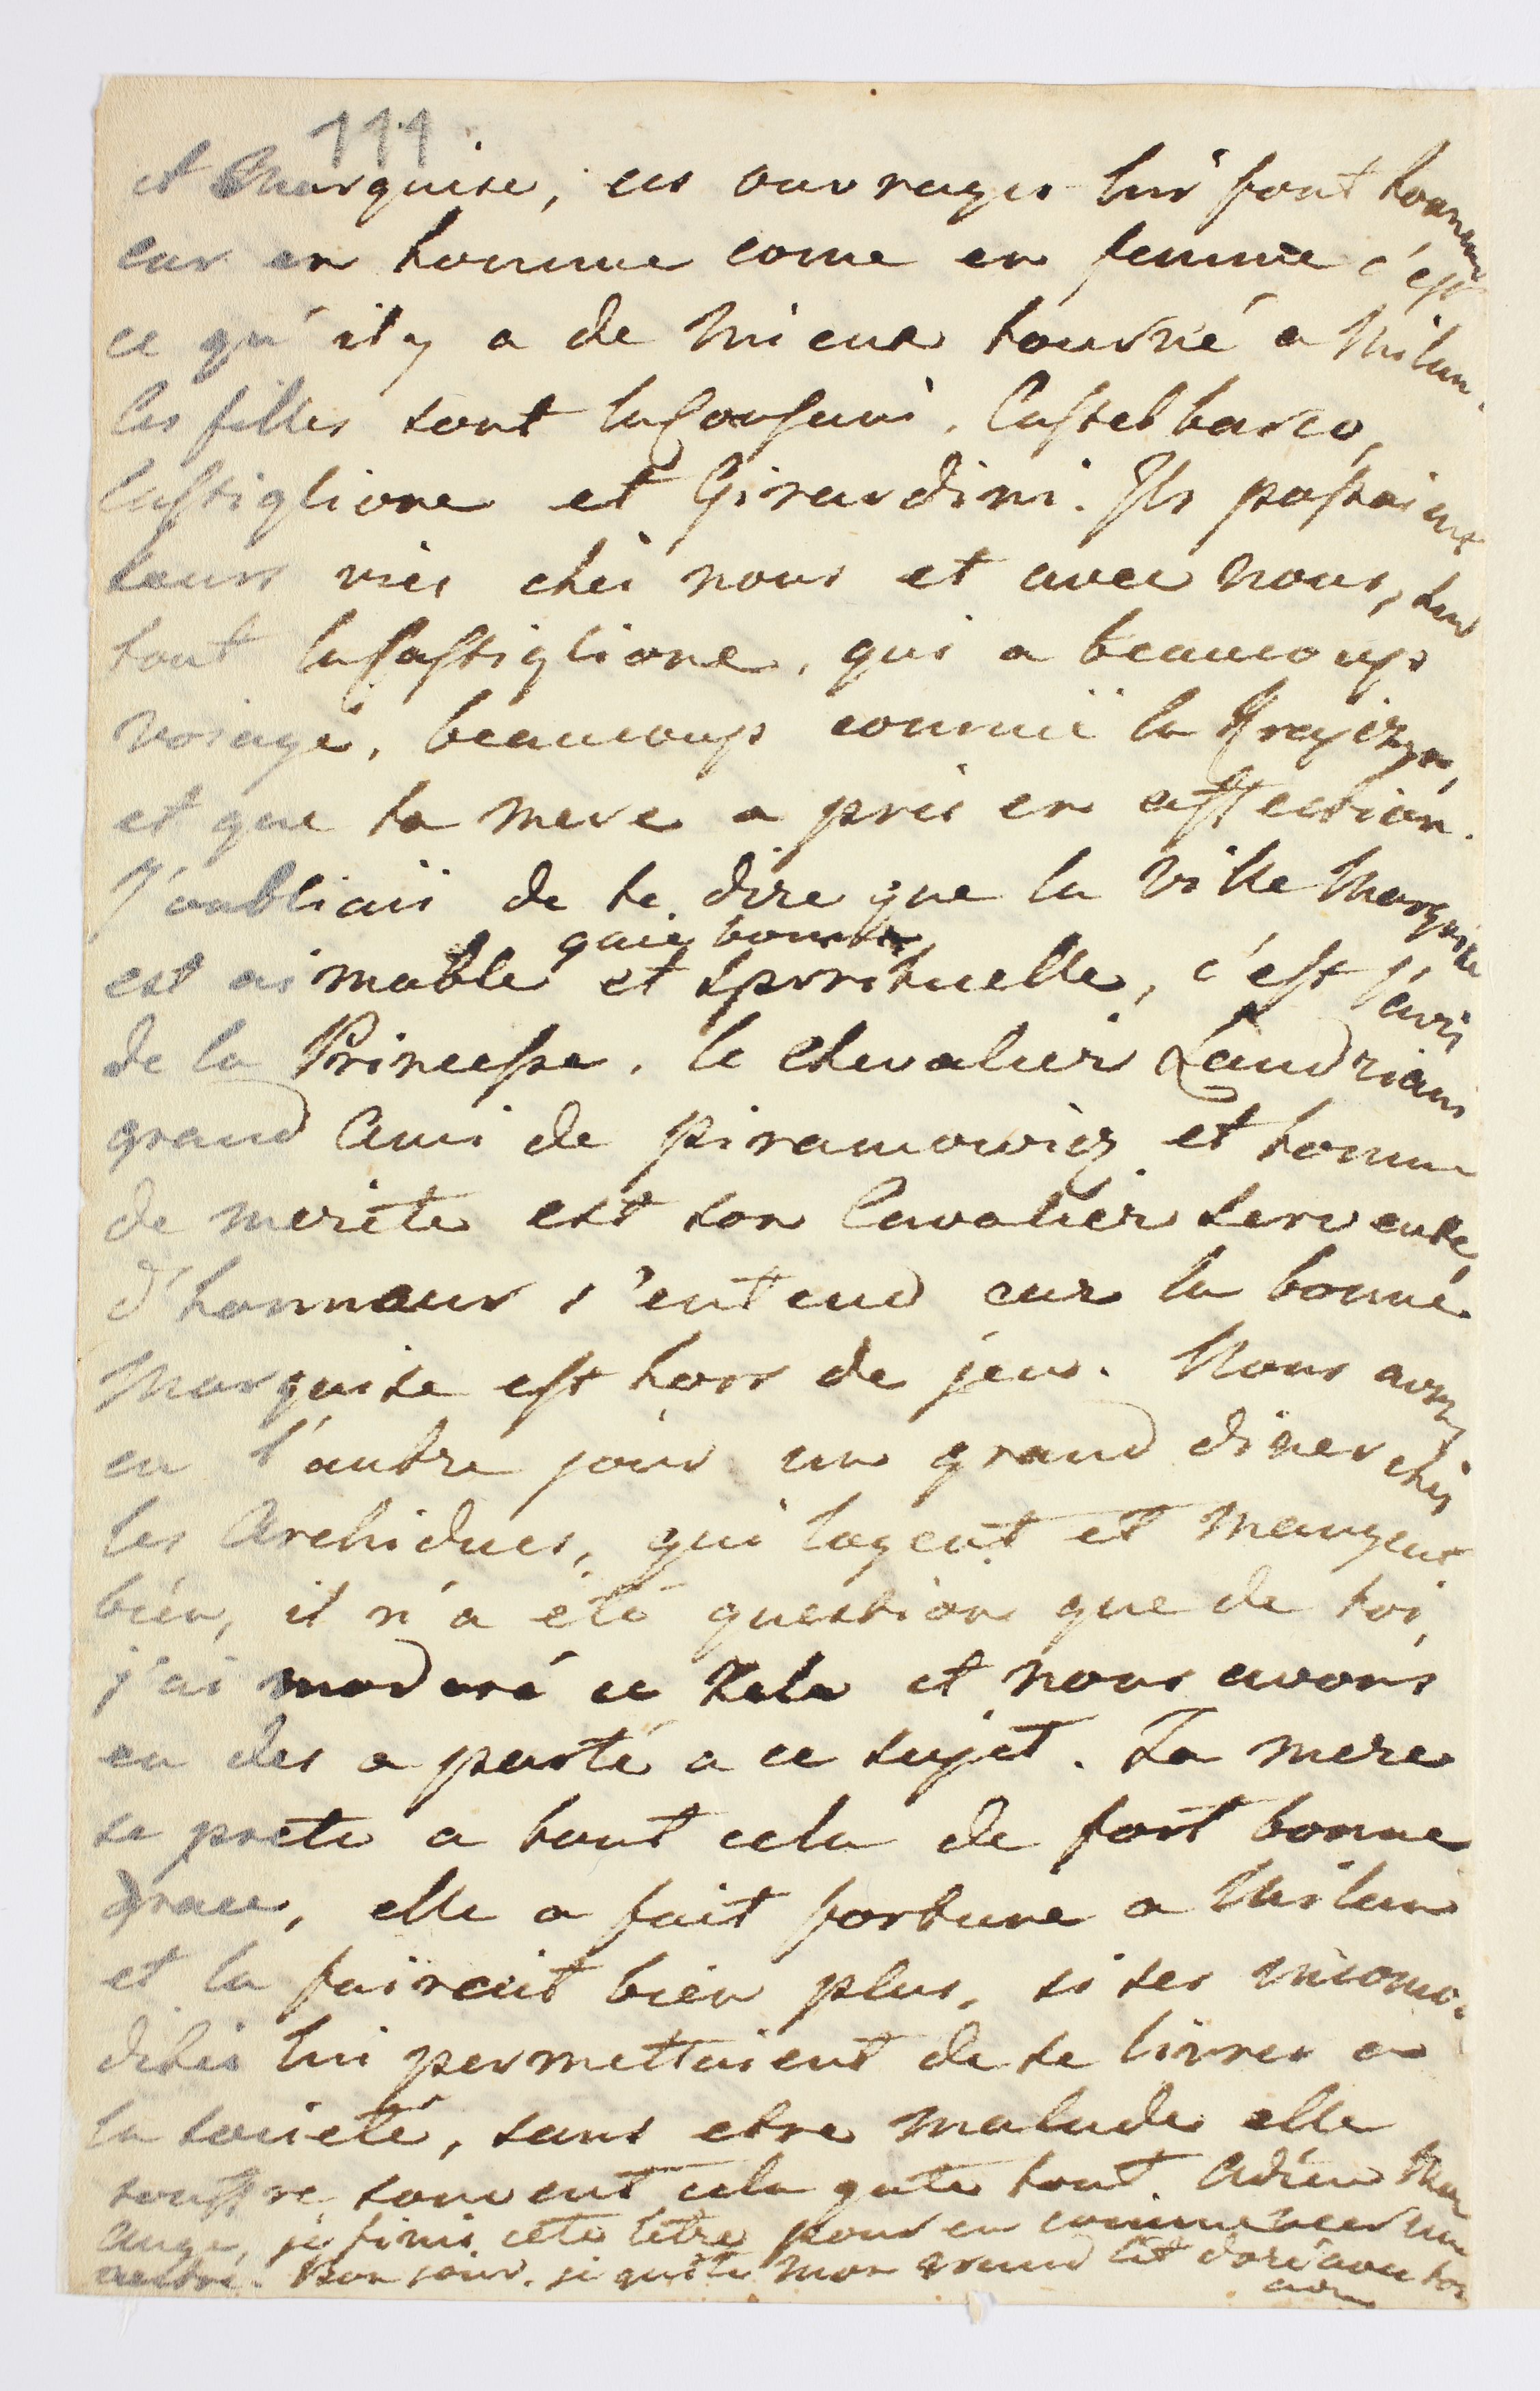 111
et Marquise, ces ouvrages lui font honneur
car en homme come en femme c'est
ce qu'il y a de mieux tourné a Milan.
les filles sont la Castelbarco,
Castiglione et Girardini. Ils passaient
leurs vies chés nous et avec nous, sur
tout la Castiglione, qui a beaucoup
voiagé, beaucoup connuë la
et que ta mere a pris en affection.
J'oubliais de te dire que la vielle Marquise
gaie bonne
est aimable et spirituelle, c'est l'avis
de la Princesse. le chevalier Landriani
grand Ami de Piramowicz et homme
de merite est son Cavalier servente,
d'honneur s'entend car la bonne
Marquise est hors de jeu. Nous avons
eu l'autre jour un grand diner chés
les Archiducs, qui logent et mangent
bien, il n'a été question que de toi,
j'ai moderé ce zele et nous avons
eu des a parté a ce sujet. Ta mere
se prete a tout cela de fort bonne
grace, elle a fait fortune a Milan
et la faireit bien plus, si ses incomo-
dités lui permettaient de se livrer a
la societé, sans etre malade elle
souffre souvent cela gate tout. Adieu Mon
Ange, je finis cete letre pour en commencer une
autre. Bon soir. je quite mon grand lit doré avec son